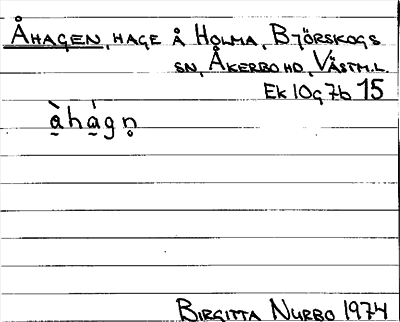 Åhagen, hage å Holma, Björskogs
sn, Åkerbo hd, Västm.l.
Ek 10g7b 15
å̠̀há̠gṇ
Birgitta Nyrbo 1974